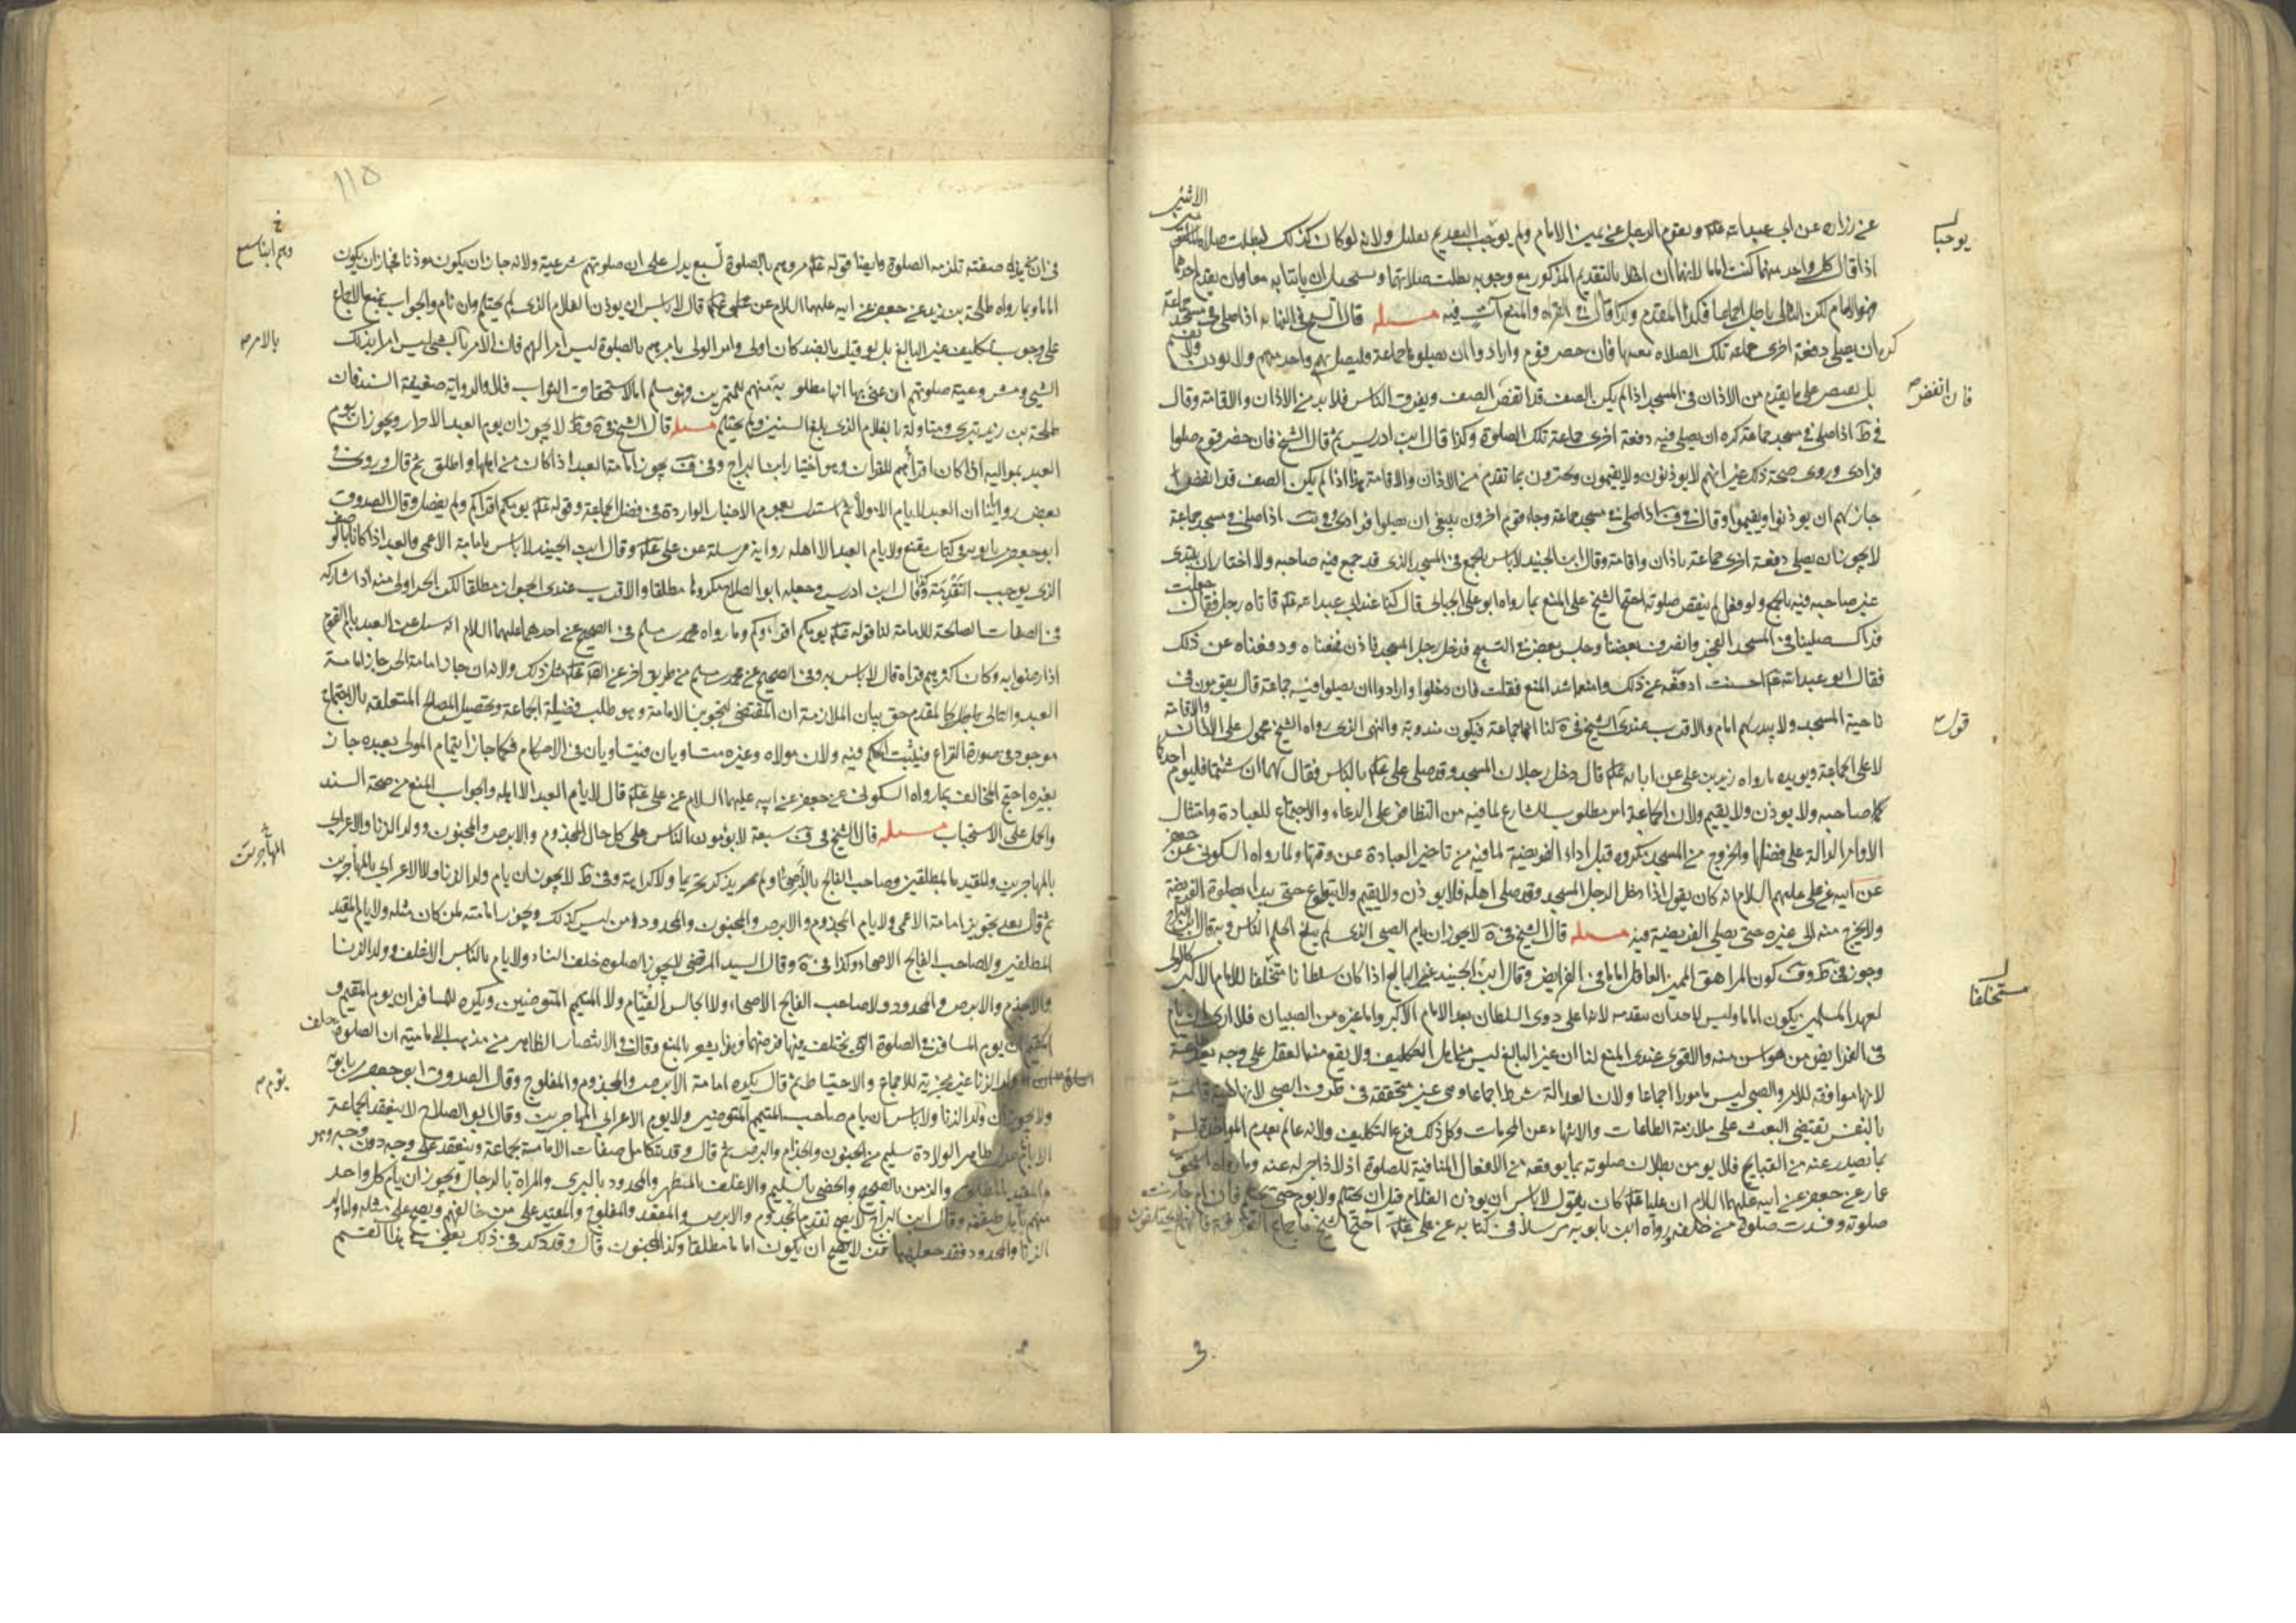 عن زرارة عن ابي عبدالله علیه و يقوم الرجل عن يمين الامام ولم يوجب التقديم بعليل ولانه لو كان كذلك لبطلت صلاة
اذا قال كل واحد منهما كنت اماما لانهما ان اخلا بالتقديم المذكور مع وجوبه بطلت صلاتهما
هو الامام لكن التالي باطل اجماعا فكذا المقدم وكذا قال في القراه والمنع آت فيه مسله قال الشيخ في النهايه اذا صلى في مسجد جماعة
كره ان يصلي دفعة اخرى جماعة تلك الصلاه بعينها فان حضر قوم وارادوا ان يصلوا جماعة فليصل بهم واحد منهم ولا يوذن
بل يقتصر على ما يقدم من الاذان في المسجد اذا لم يكن الصف قد انفض الصف وتفرق الناس فلا بد من الاذان والاقامة وقال
في ط اذا صلى في مسجد جماعة كره ان يصلي فيه دفعة اخرى جماعة تلك الصلوة وكذا قال ابن ادريس ثم قال الشيخ فان حضر قوم صلوا
فرادى وروى صحة ذلك غير انهم لا يوذنون ولا يقيمون ويجتزون بما تقدم من الاذان والاقامة هذا اذا لم يكن الصف قد انفض
جاز لهم ان يوذنوا ويقيموا وقال في اذا صلى في مسجد جماعة وجاء قوم اخرون ينبغي ان يصلوا فرادى وفي اذا صلى في مسجد جماعة
لا يجوز ان يصلي دفعة اخرى جماعة باذان واقامة وقال ابن الجنيد لا باس بالجمع في المسجد الذي قد جمع فيه صاحبه ولا اختار ان يبتدى
غير صاحبه فيه بالجمع ولو فعل لم ينقض صلوته احتج الشيخ على المنع بما رواه ابو علي الجبائي قال كنا عند ابي عبدالله علیه فاتاه رجل فقال جعلت
فداك صلينا في المسجد الفجر وانصرف بعضنا وجلس بعض في التسبيح فدخل رجل المسجد فاذن فمنعناه ودفعناه عن ذلك
فقال ابو عبدالله علیه احسنت ادفعه عن ذلك وامنعه اشد المنع فقلت فان دخلوا وارادوا ان يصلوا فيه جماعة قال يقومون في
ناحية المسجد ولا يبدر بهم امام والاقرب عندى لنا انها جماعة فيكون مندوبة والنهي الذي رواه الشيخ محمول على الاذان والاقامة
لا على الجماعة ويويده ما رواه زيد بن علي عن ابائه علیه قال دخل رجلان المسجد وقد صلى علي علیه بالناس فقال لهما ان شئتما فليوم احدكما
صاحبه ولا يوذن ولا يقيم ولان الجماعة امر مطلوب للشارع لما فيه من التظافر على الدعاء والاجتماع للعبادة وامتثال
الاوامر الدالة على فضلها والخروج من المسجد مكروه قبل اداء الفريضة لما فيه من تاخير العبادة عن وقتها ولما رواه السكوني عن جعفر
عن ابيه عن علي عليهم السلام انه كان يقول اذا دخل الرجل المسجد وقد صلى اهله فلا يوذن ولا يقيم ولا يتطوع حتى يبدا بصلوة الفريضة
ولا يخرج منه الى غيره حتى يصلي الفريضة فيه مسله قال الشيخ في لا يجوز ان يام الصبي الذي لم يبلغ الحلم الناس وبه قال ابن البراج
وجوز في ط و كون المراهق المميز العاقل اماما في الفرايض وقال ابن الجنيد غير البالغ اذا كان سلطانا مستخلفا للامام الاكبر كالولي
لعهد المسلمين يكون اماما وليس لاحد ان يتقدمه لانه اعلى ذوى السلطان بعد الامام الاكبر واما غيره من الصبيان فلا ارى ان يام
في الفرايض من هو اسن منه والاقوى عندى المنع لنا ان غير البالغ ليس من اهل التكليف ولا يقع منه الفعل على وجه يعد طاعة
لانها موافقة للامر والصبي ليس مامورا اجماعا ولان العدالة شرط اجماعا وهي غير متحققة في طرف الصبي لانها هيئة قائمة
بالنفس يقتضي البعث على ملازمة الطاعات والانتهاء عن المحرمات وكل ذلك فرع التكليف ولانه عالم بعدم المواخذة له
بما يصدر عنه من القبايح فلا يومن بطلان صلوته بما يوقعه من الافعال المنافية للصلوة اذ لا زاجر له عنه وما رواه اسحق
عمار عن جعفر عن ابيه عليهما السلام ان عليا علیه كان يقول لا باس ان يوذن الغلام قبل ان يحتلم ولا يوم حتى يحتلم فان ام جازت
صلوته وفسدت صلوة من خلفه ورواه ابن بابويه مرسلا في كتابه عن علي علیه احتج الشيخ
يوجبا
فان انفض
قول
مستخلفا
١١٥
صفته تلزمه الصلوة وايضا قوله علیه مروهم بالصلوة لسبع يدل على ان صلوتهم شرعية ولانه جاز ان يكون موذنا فجاز ان يكون
اماما وبما رواه طلحة بن زيد عن جعفر عن ابيه عليهما السلام عن علي علیه قال لا باس ان يوذن الغلام الذي لم يحتلم وان يام والجواب يمنع الاجماع
على وجوب تكليف غير البالغ بل لو قيل بالضد كان اولى وامر الولي يامرهم بالصلوة ليس امرا لهم فان الامر بالامر بالشي ليس امرا بذلك
الشي ومشروعية صلوتهم ان عنى بها انها مطلوبة منهم للتمرين فهو مسلم اما لاستحقاق الثواب فلا والرواية ضعيفة السند فان
طلحة بن زيد بترى ومتاولة بالغلام الذي بلغ السنين ولم يحتلم مسله قال الشيخ في وط لا يجوز ان يوم العبد الاحرار ويجوز ان يوم
العبد بمواليه اذا كان اقراهم للقران وهو اختيار ابن البراج وفي يجوز امامة العبد اذا كان من اهلها واطلق ثم قال وروى في
بعض رواياتنا ان العبد لا يام الا مولاه ثم استدل بعموم الاخبار الواردة في فضل الجماعة وقوله علیه يومكم اقراكم ولم يفصل وقال الصدوق
ابو جعفر بن بابويه في كتاب مقنع ولا يام العبد الا اهله رواية مرسلة عن علي علیه وقال ابن الجنيد لا باس بامامة الاعمى والعبد اذا كانا بالوصف
الذي يوجب التقدمة وقال ابن ادريس وجعله ابو الصلاح مكروها مطلقا والاقرب عندى الجواز مطلقا لكن الحر اولى منه اذا شاركه
في الصفات الصالحة للامامة لنا قوله علیه يومكم اقراوكم وما رواه محمد بن مسلم في الصحيح عن احدهما عليهما السلام انه سئل عن العبد يام القوم
اذا رضوا به وكان اكثرهم قراه قال لا باس به وفي الصحيح عن محمد بن مسلم من طريق اخر عن مثل ذلك ولانه ان جاز امامة الحر جاز امامة
العبد والتالي كالمقدم حق بيان الملازمة ان المقتضي لتجويز الامامة وهو طلب فضيلة الجماعة وتحصيل المصالح المتعلقه بالاجتماع
موجود في صورة النزاع فيثبت الحكم فيه ولان مولاه وغيره متساويان فيتساويان في الاحكام فكما جاز ايتمام المولى بعبده جاز
بغيره احتج المخالف بما رواه السكوني عن جعفر عن ابيه عليهما السلام عن علي علیه قال لا يام العبد الا اهله والجواب المنع من صحة السند
والحمل على الاستحباب مسله قال الشيخ في سبعة لا يومون الناس على كل حال المجذوم والابرص والمجنون وولد الزنا والاعرابي
بالمهاجرين والمقيد بالمطلقين وصاحب الفالج بالاصحاء ولم يذكر تحريما ولا كراهة وفي ط لا يجوز ان يام ولد الزنا ولا الاعرابي بالمهاجرين
ثم قال بعد تجويز امامة الاعمى ولا يام المجذوم والابرص والمجنون والمحدود من ليس كذلك ويجوز امامته لمن كان مثله ولا يام المقيد
المطلقين ولا صاحب الفالج الاصحاء وكذا في وقال السيد المرتضى لا يجوز الصلوه خلف الفساق ولا يام بالناس الاغلف وولد الزنا
والاجذم والابرص والمحدود ولا صاحب الفالج الاصحاء ولا الجالس القيام ولا المتيمم المتوضين ويكره للمسافر ان يوم المقيم و
المقيم ان يوم المسافر في الصلوة التي يختلف فيها فرضهما وهذا يشعر بالمنع وقال في الانتصار الظاهر من مذهب الامامية ان الصلوة خلف
ولد الزنا غير مجزية للاجماع والاحتياط ثم قال يكره امامة الابرص والمجذوم والمفلوج وقال الصدوق ابو جعفر بن بابويه
ولا يجوز ان ولد الزنا ولا باس ان يام صاحب المتيمم المتوضين ولا يوم الاعرابي المهاجرين وقال ابو الصلاح لا ينعقد الجماعة
الا بامام عدل طاهر الولادة سليم من الجنون والجذام والبرص ثم قال وقد يتكامل صفات الامامة بجماعة وينعقد على وجه دون وجه وهو
والمقيد بالمطلق والزمن بالصحيح والخصي بالسليم والاغلف بالمتطهر والمحدود بالبرى والمراة بالرجال ويجوز ان يام كل واحد
منهم باهل طبقته وقال ابن البراج لا يصح تقدم المجذوم والابرص والمقعد والمفلوج والمقيد على من خالفهم ويصح على مثله واما ولد
الزنا والمحدود فقد جعلهما ممن لا يصح ان يكون اماما مطلقا وكذا المجنون قال وقد ذكر في ذلك
بالامر
المهاجرين
يوم